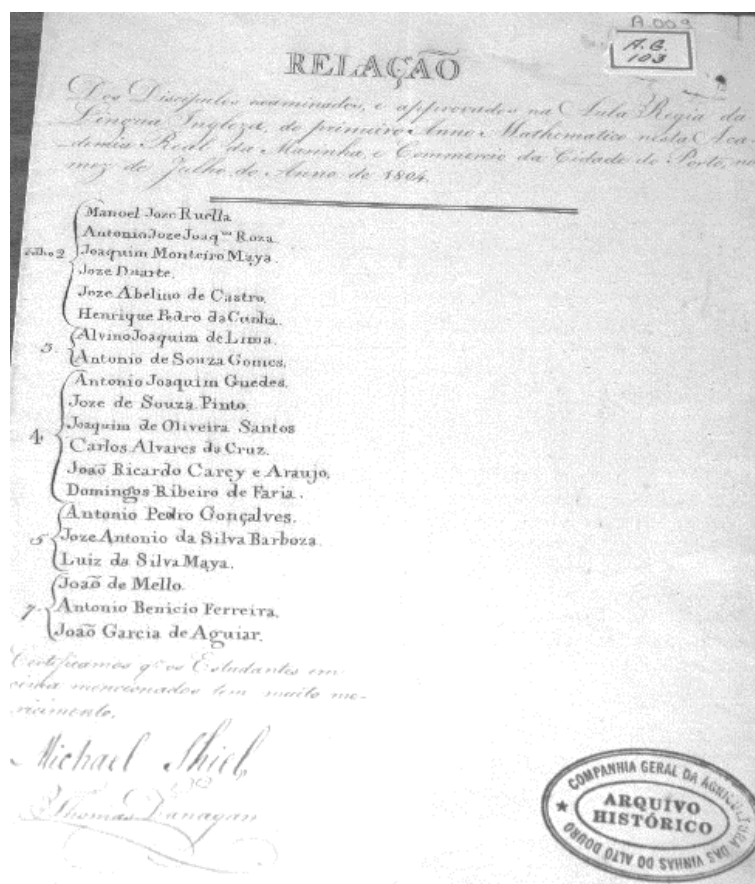 A.009
A.G.
103
RELAÇAÕ
Dos Discipulos examinados, e approvados na Aula Regia da
Lingua Ingleza, do primeiro Anno Mathematico nesta Aca-
demia Real da Marinha, e Commercio da Cidade do Porto, no
mez de Julho do Anno de 1804.
Manoel Joze Ruella
Antonio Joze Joaq.^m Roza
Julho 2 Joaquim Monteiro Maya.
Joze Duarte.
Joze Abelino de Castro.
Henrique Pedro da Cunha.
3. Alvino Joaquim de Lima.
Antonio de Souza Gomes.
Antonio Joaquim Guedes.
Joze de Souza Pinto.
Joaquim de Oliveira Santos
4 Carlos Alvares da Cruz.
Joaõ Ricardo Carey e Araujo.
Domingos Ribeiro de Faria.
Antonio Pedro Gonçalves.
5 Joze Antonio da Silva Barboza.
Luiz da Silva Maya.
Joaõ de Mello.
7. Antonio Benicio Ferreira.
Joaõ Garcia de Aguiar.
Certificamos q.^e os Estudantes em
cima mencionados tem muito me-
ricimento.
Michael Shiel
Thomas Danagan
COMPANHIA GERAL DA AGRICULTURA DAS VINHAS DO ALTO DOURO
ARQUIVO
HISTÓRICO